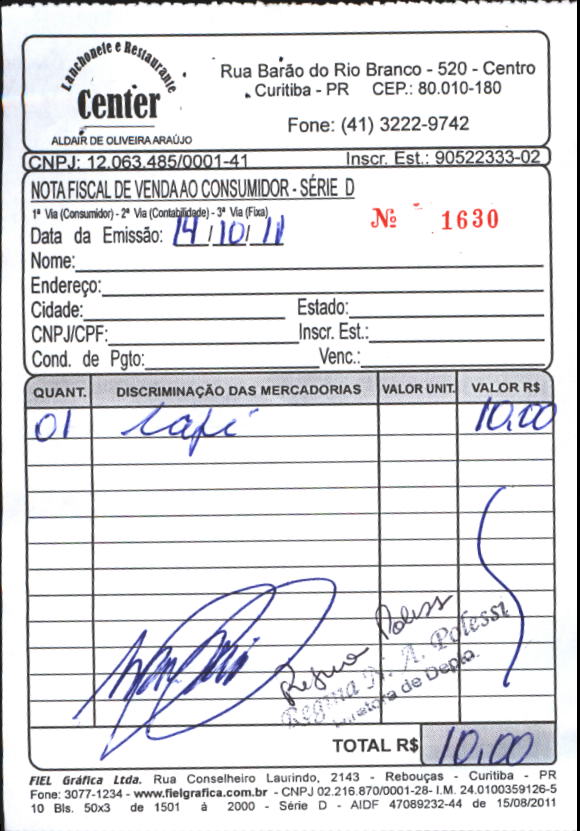 Lanchonete e Restaurante
Center
ALDAIR DE OLIVEIRA ARAÚJO
Rua Barão do Rio Branco - 520 - Centro
Curitiba - PR CEP.: 80.010-180
Fone: (41) 3222-9742
CNPJ: 12.063.485/0001-41 Inscr. Est.: 90522333-02
NOTA FISCAL DE VENDA AO CONSUMIDOR - SÉRIE D
1ª Via (Consumidor) - 2ª Via (Contabilidade) - 3ª Via (Fixa)
Nº 1630
Data da Emissão: 14/10/11
Nome:
Endereço:
Cidade: Estado:
CNPJ/CPF: Inscr. Est.:
Cond. de Pgto: Venc.:
QUANT. DISCRIMINAÇÃO DAS MERCADORIAS VALOR UNIT. VALOR R$
01 Café 10,00
Regina Polessi
Regina N. A. Polessi
Diretora de Depto.
TOTAL R$ 10,00
FIEL Gráfica Ltda. Rua Conselheiro Laurindo, 2143 - Rebouças - Curitiba - PR
Fone: 3077-1234 - www.fielgrafica.com.br - CNPJ 02.216.870/0001-28- I.M. 24.0100359126-5
10 Bls. 50x3 de 1501 à 2000 - Série D - AIDF 47089232-44 de 15/08/2011